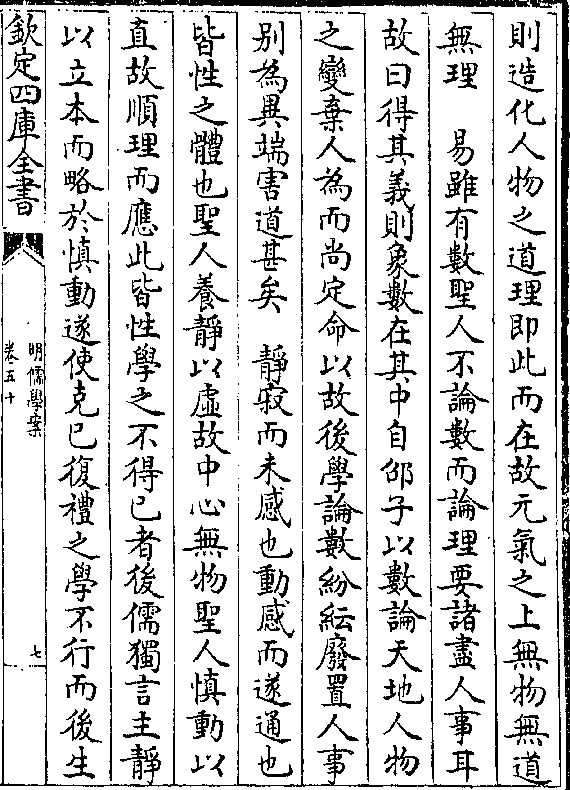 則造化人物之道理即此而在故元氣之上無物無道
無理　易雖有數聖人不論數而論理要諸盡人事耳
故曰得其義則象數在其中自邵子以數論天地人物
之變棄人為而尚定命以故後學論數紛紜廢置人事
別為異端害道甚矣　靜寂而未感也動感而遂通也
皆性之體也聖人養靜以虛故中心無物聖人慎動以
直故順理而應此皆性學之不得已者後儒獨言主靜
以立本而略於慎動遂使克己復禮之學不行而後生
欽定四庫全書
明儒學案
卷五十
七